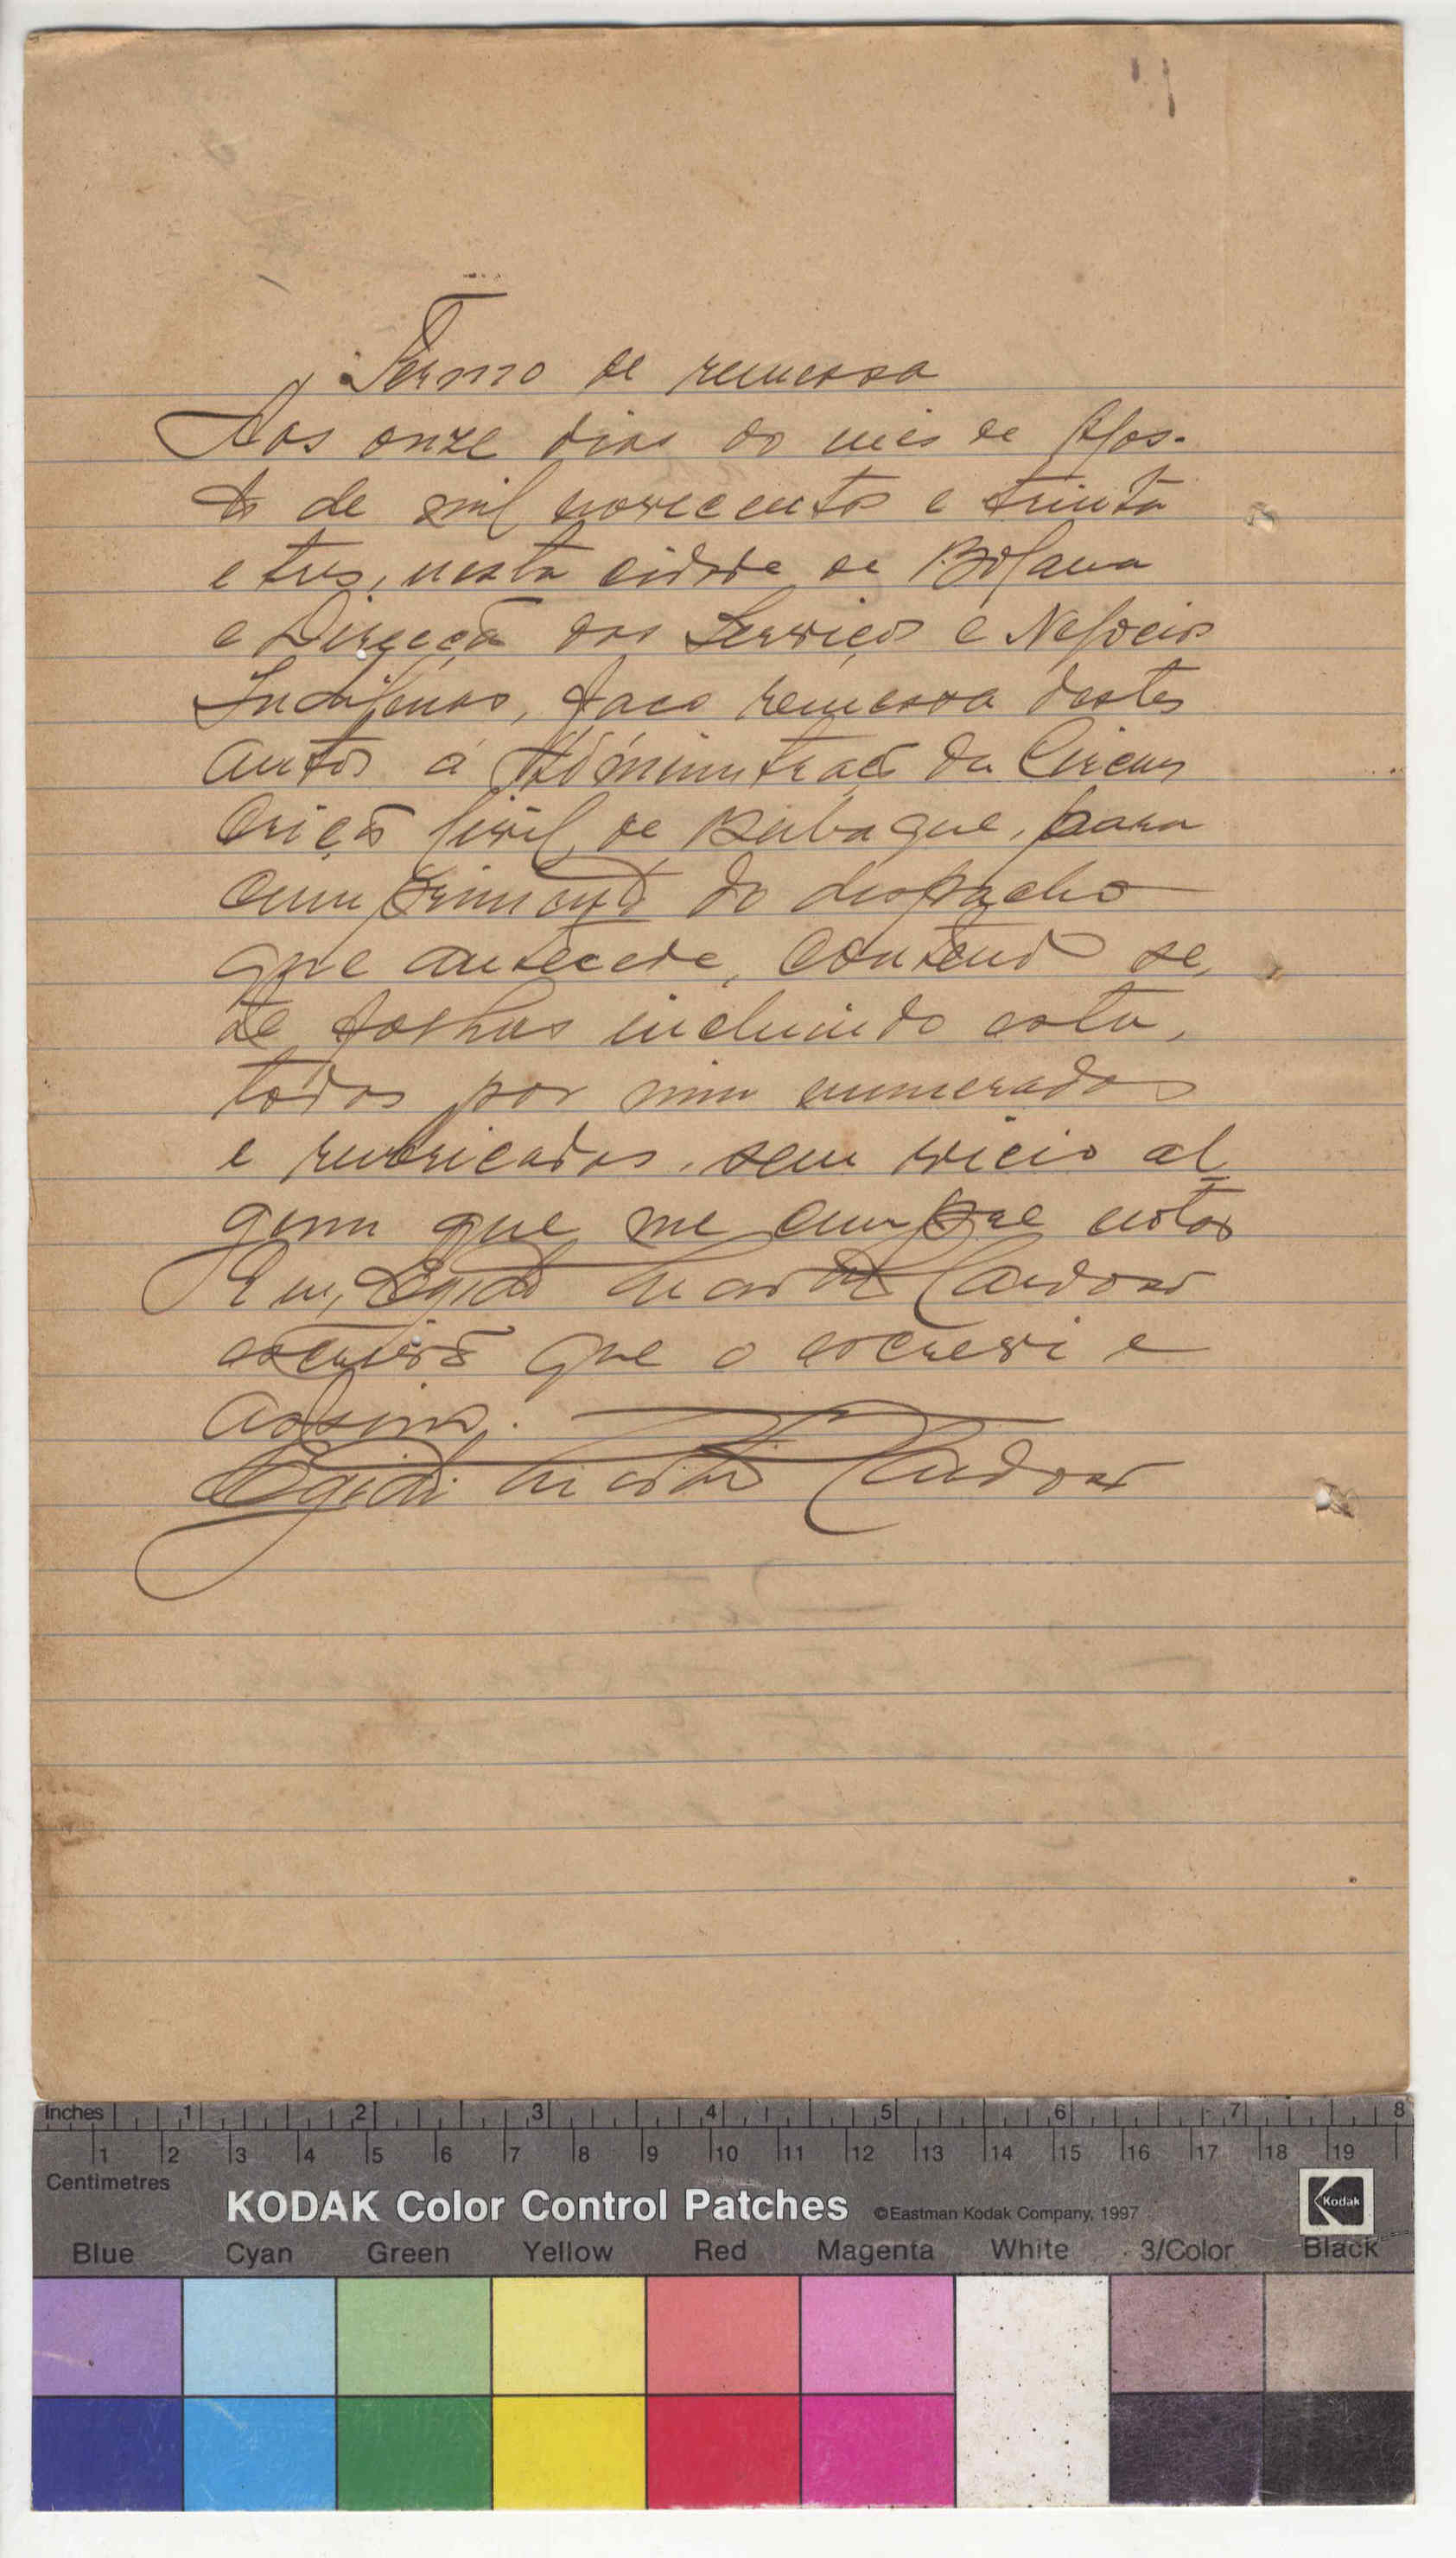 Termo de remessa
Aos onze dias do mês de Agos-
to de mil novecentos e trinta
e tres, nesta cidade de Bolama
e Direcção dos Serviços e Negocios
Indigenas, faço remessa destes
autos á Administração da Circuns
crição Civil de Bubaque, para
cumprimento do despacho
que antecede, contendo se
te folhas incluindo esta,
todas por mim numeradas
e rubricadas, sem vicio al
gum que me cumpre notar
Eu, Egidio Cardoso
escrivão que o escrevi e
assino.
Egidio Cardoso
Inches 1 2 3 4 5 6 7 8
1 2 3 4 5 6 7 8 9 10 11 12 13 14 15 16 17 18 19
Centimetres
KODAK Color Control Patches ©Eastman Kodak Company, 1997 Kodak
Blue Cyan Green Yellow Red Magenta White 3/Color Black